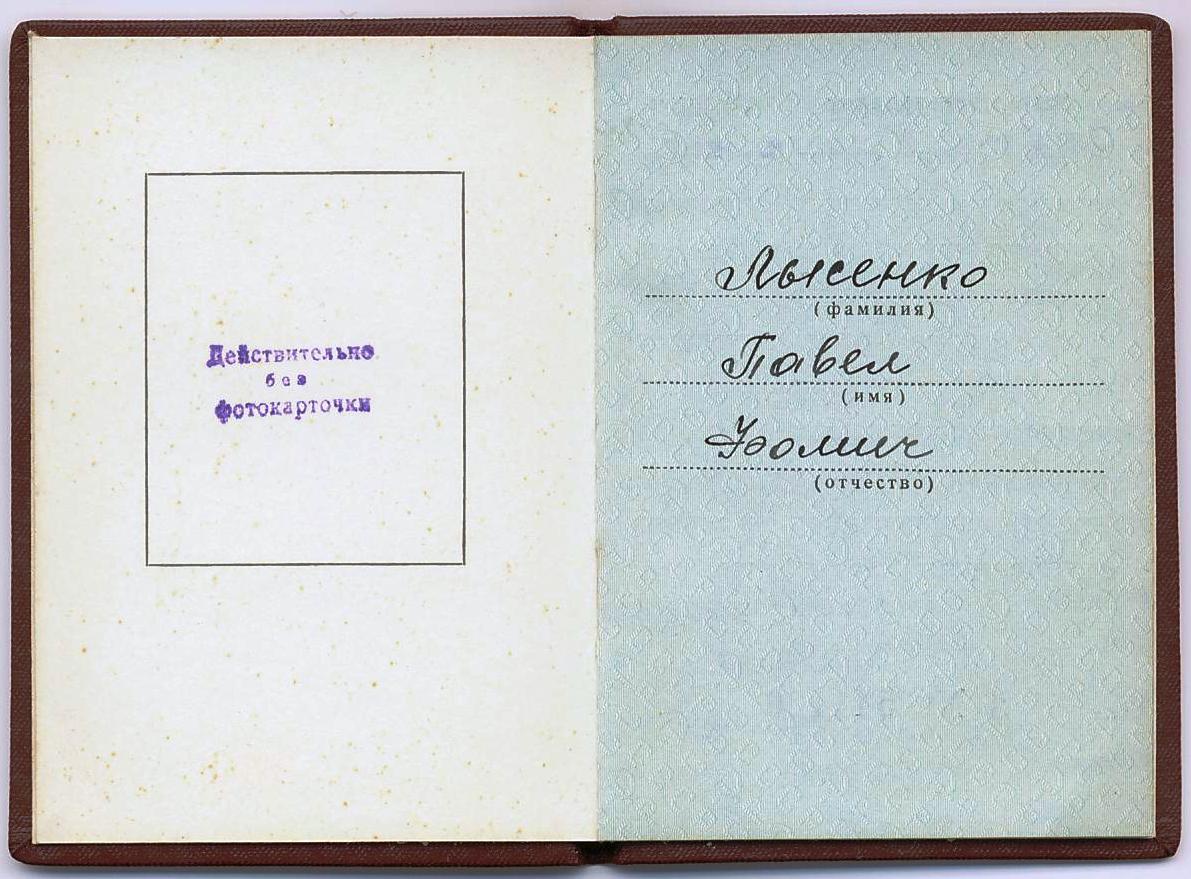 Действительно
без
фотокарточки
Лысенко
(фамилия)
Павел
(имя)
Фомич
(отчество)